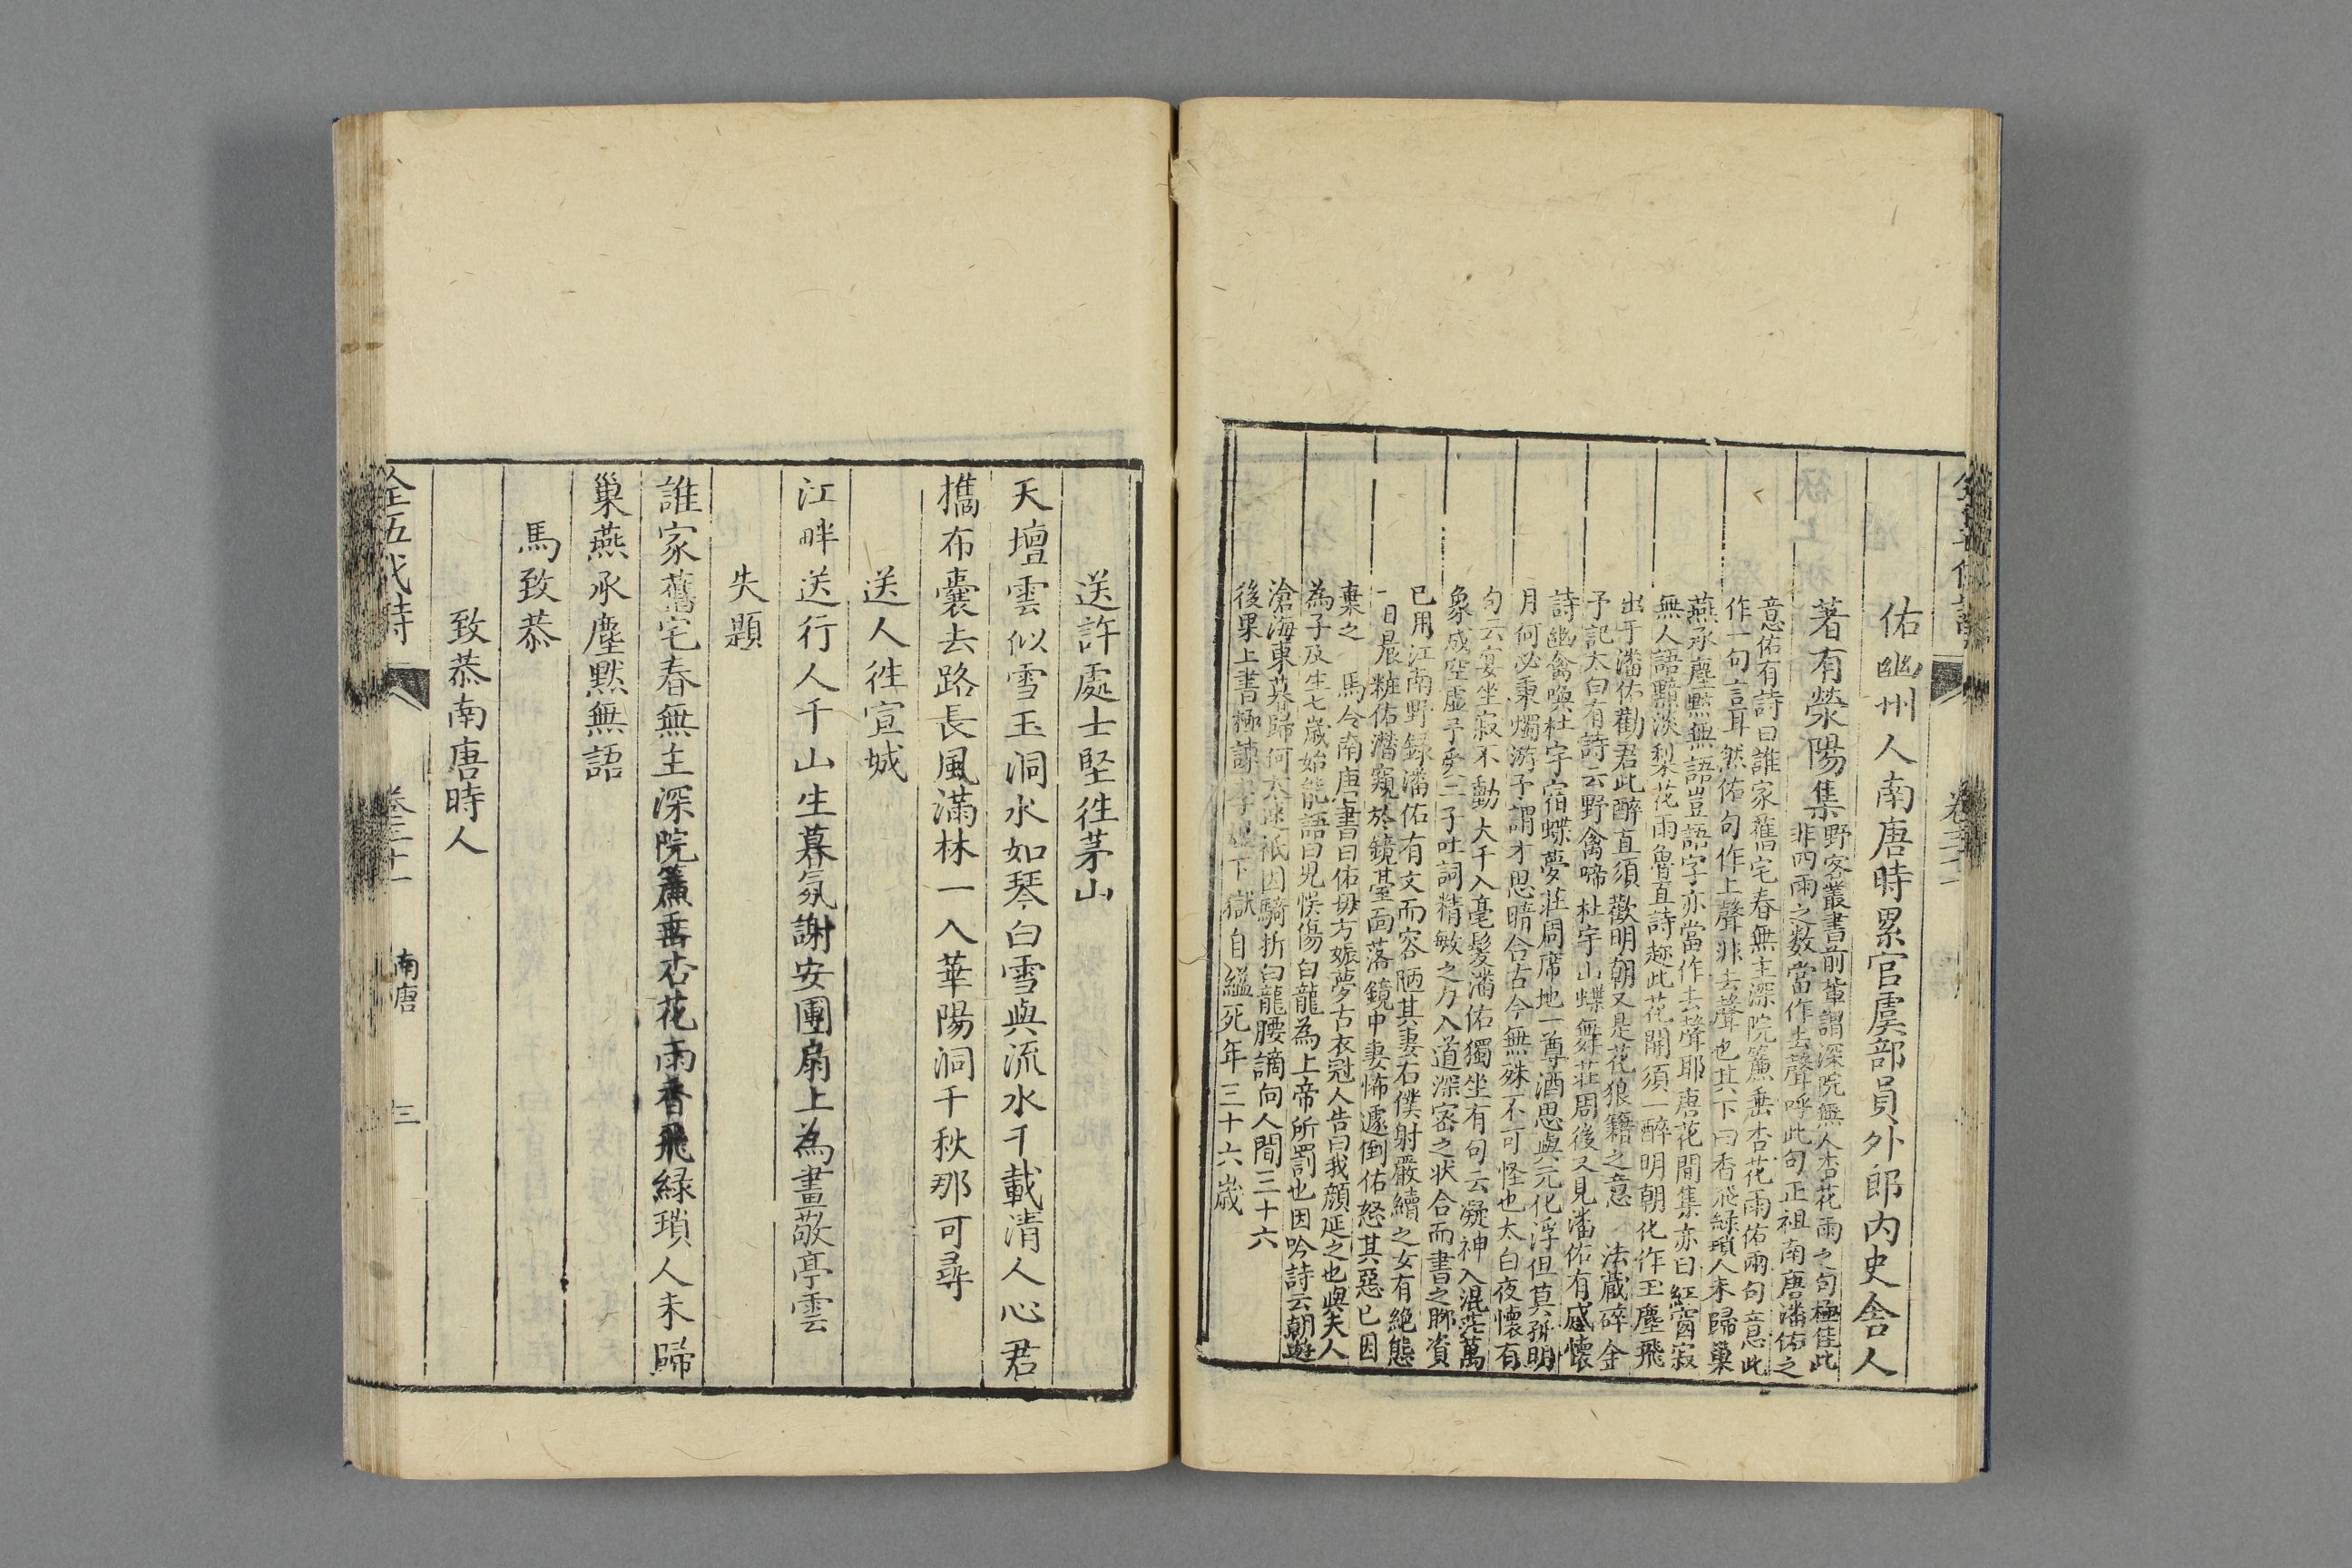 佑幽州人南唐時累官虞部員外郎内史舍人
著有滎陽集
野客叢書前輩謂深院無人杏花雨之句極佳此
非四雨之数當作去聲呼此句正祖南唐潘佑之
意佑有詩曰誰家舊宅春無主深院簾垂杏花雨佑兩句意此
作一句言耳然佑句作上聲非去聲也其下曰香飛緑瑣人未歸巢
燕承塵黙無語豈語字亦當作去聲耶唐花間集亦曰紅窗寂
無人語黯淡梨花雨魯直詩趂此花開須一醉明朝化作玉塵飛
出于潘佑勸君此醉直須歡明朝又是花狼籍之意　法藏碎金
予記太白有詩云野禽啼杜宇山蝶舞莊周後又見潘佑有感懐
詩幽禽喚杜宇宿蝶夢莊周席地一尊酒思與元化浮但莫孤明
月何必秉燭游予謂才思暗合古今無殊不可怪也太白夜懐有
句云宴坐寂不動大千入毫髮潘佑獨坐有句云凝神入混茫萬
象成空虛予愛二子吐詞精敏之力入道深密之状合而書之聊資
已用江南野録潘佑有文而容陋其妻右僕射嚴續之女有絶態
一日晨粧佑潛窺於鏡臺面落鏡中妻怖遽倒佑怒其惡已因
棄之　馬令南唐書曰佑母方娠夢古衣冠人告曰我顔延之也與夫人
為子及生七歲始能語曰兒悞傷白龍為上帝所罰也因吟詩云朝遊
滄海東暮歸何太速祇因騎折白龍腰謫向人間三十六
後果上書極諫下獄自縊死年三十六歲
送許處士堅徃茅山
天壇雲似雪玉洞水如琴白雪與流水千載清人心君
攜布囊去路長風滿林一入華陽洞千秋那可尋
送人徃宣城
江畔送行人千山生暮氛謝安團扇上為畫敬亭雲
失題
誰家舊宅春無主深院簾垂杏花雨香飛緑瑣人未歸
巢燕承塵黙無語
馬致恭
致恭南唐時人
全五代詩　卷三十一　南唐　三